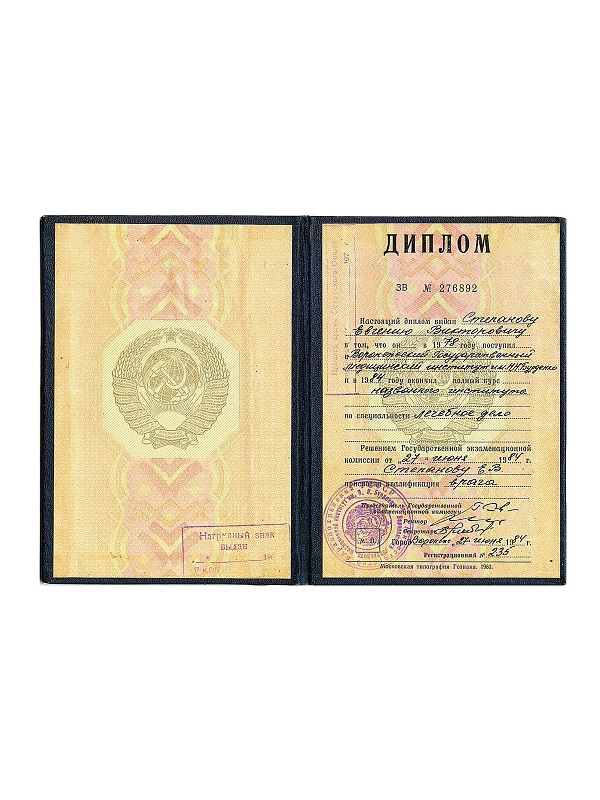 Нагрудный знак
выдан
198
ДИПЛОМ
ЗВ № 276892
Настоящий диплом выдан Степанову
Евгению Викторовичу
в том, что он в 1978 году поступил
в Воронежский Государственный
медицинский институт им. Н.Н. Бурденко
и в 1984 году окончил полный курс
названного института
по специальности лечебное дело
Решением Государственной экзаменационной
комиссии от „27" июня 1984 г.
Степанову Е.В.
присвоена квалификация врача
Председатель Государственной
экзаменационной комиссии
Ректор
Секретарь
Город Воронеж, 27 июня 1984 г.
Регистрационный № 235
Московская типография Гознака. 1981.